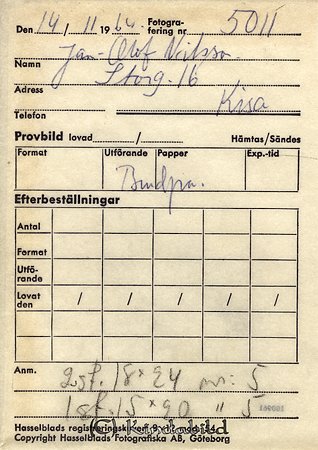 Den 14 / 11 1964 Fotogra-
fering nr 5011
Namn Jan-Olof Nilsson
Adress Storg. 16
Kisa
Telefon
Provbild lovad / Hämtas/Sändes
Format Utförande Papper Exp.-tid
Efterbeställningar
Antal
Format
Utfö-
rande
Lovat
den / / / / /
Anm. 2 st. 18 x 24 nr: 5
1 st. 15 x 20 " 5
Hasselblads registreringskuvert 9x12 mod. 54
Copyright Hasselblads Fotografiska AB, Göteborg